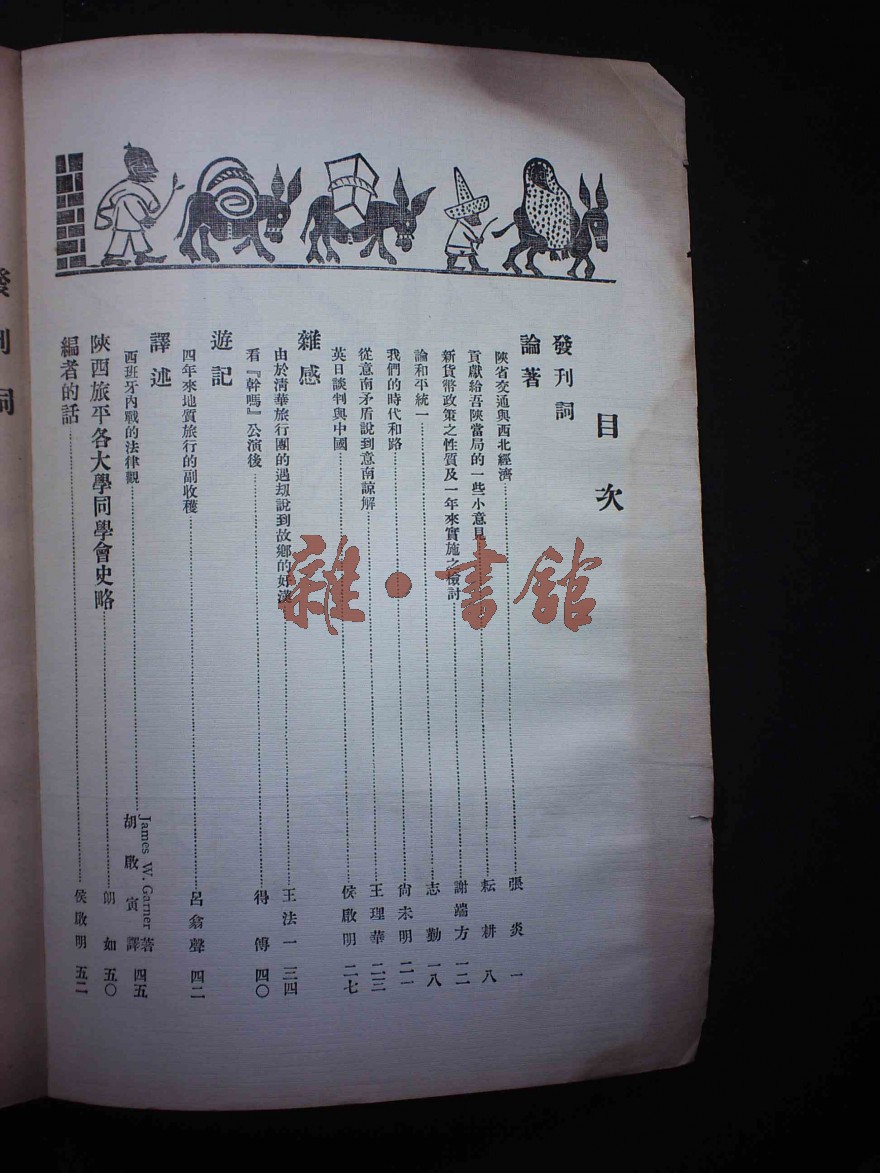 目次
發刊詞
論著
陝省交通與西北經濟 張炎 一
貢獻給吾陝當局的一些小意見 耘耕 八
新貨幣政策之性質及一年來實施之檢討 謝端方 一二
論和平統一 志勤 一八
我們的時代和路 尙未明 二一
從意南矛盾說到意南諒解 王理華 二三
英日談判與中國 侯啟明 二七
雜感
由於淸華旅行團的遇刼說到故鄉的好漢 王法一 三四
看『幹嗎』公演後 得傅 四〇
遊記
四年來地質旅行的副收穫 呂翕聲 四二
譯述
西班牙內戰的法律觀 James W. Garner著 胡啟寅譯 四五
陝西旅平各大學同學會史略 如 五〇
編者的話 侯啟明 五二
雜·書館
發刊詞